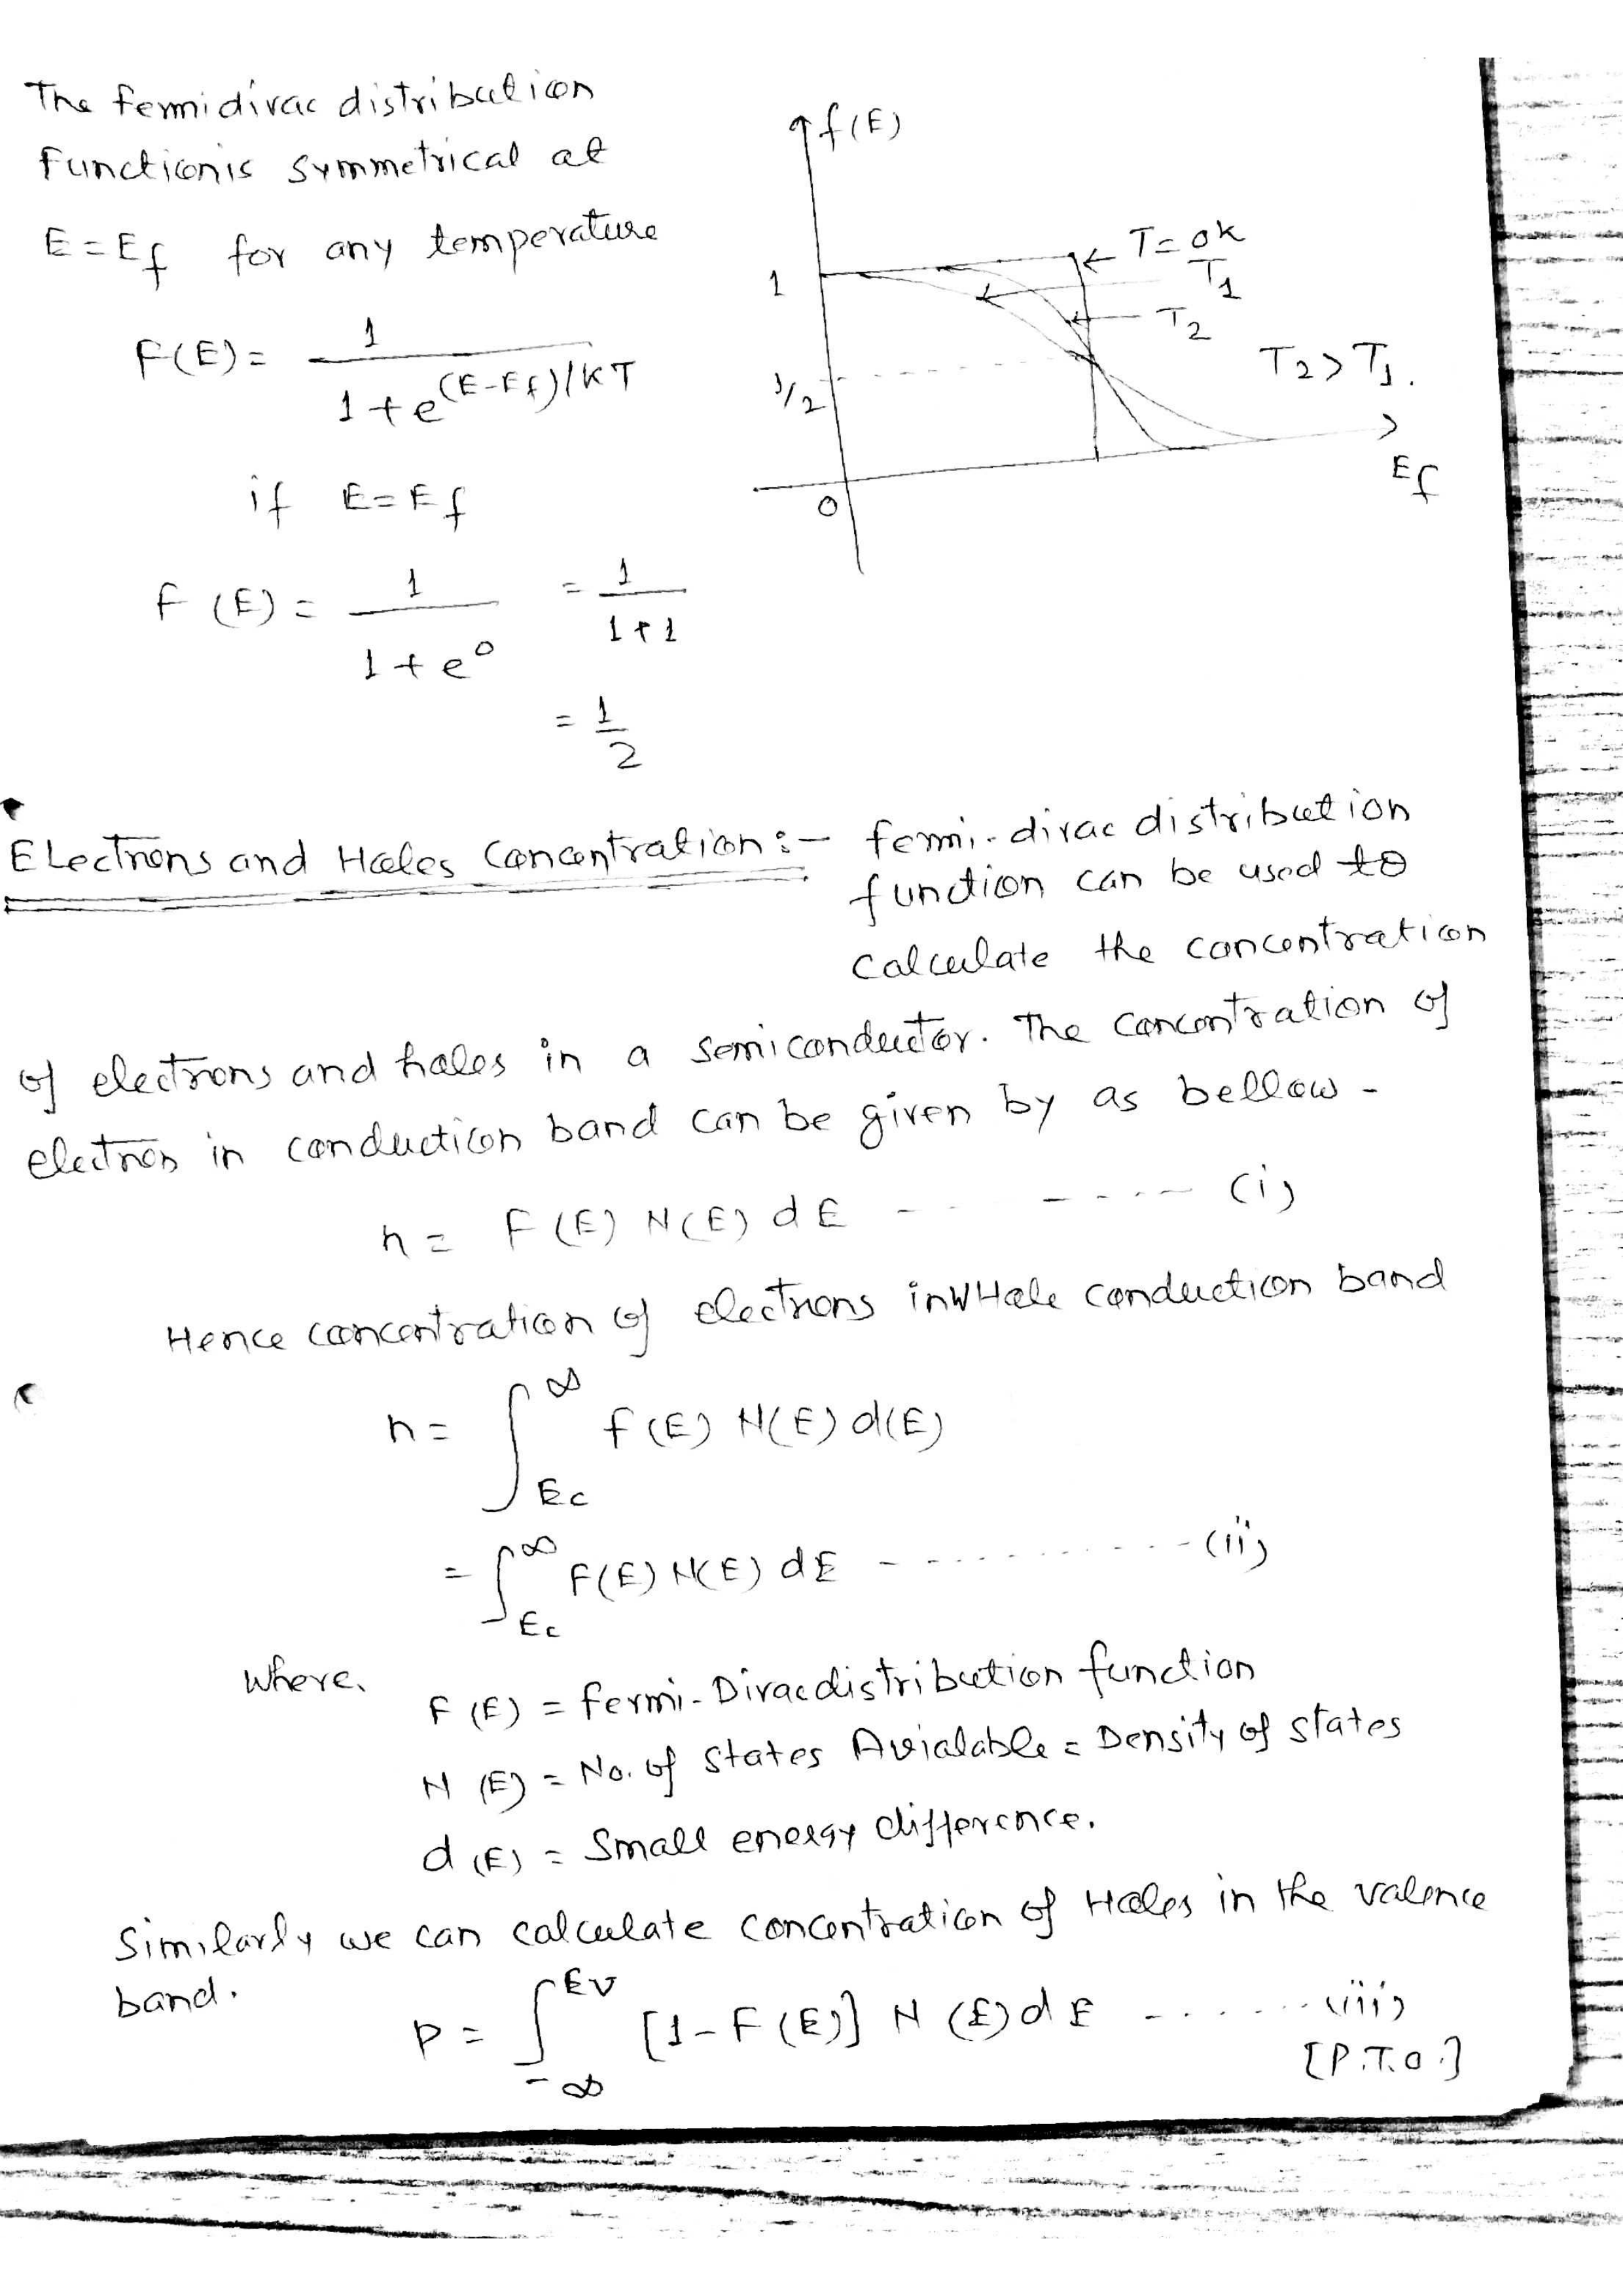 The fermidirac distribution
Function is symmetrical at
E = Ef for any temperature
F(E) = 1 / 1 + e^(E-Ef)/KT
if E = Ef
F(E) = 1 / 1 + e^0 = 1 / 1+1
= 1/2
f(E)
T = 0K
T1
1
T2
T2 > T1.
1/2
Ef
0
Electrons and Holes Concentration :- fermi-dirac distribution
function can be used to
calculate the concentration
of electrons and holes in a semiconductor. The concentration of
electron in conduction band can be given by as bellow -
n = F(E) N(E) dE - - - - - - (i)
Hence concentration of electrons in WHole conduction band
n = ∫_Ec^∞ f(E) N(E) d(E)
= ∫_Ec^∞ F(E) N(E) dE - - - - - - - - - - (ii)
Where,
F(E) = fermi-Dirac distribution function
N(E) = No. of states Avialable = Density of states
d(E) = Small energy difference.
Similarly we can calculate concentration of Holes in the valence
band.
p = ∫_-∞^Ev [1-F(E)] N(E) dE - - - - - - (iii)
[P.T.O.]